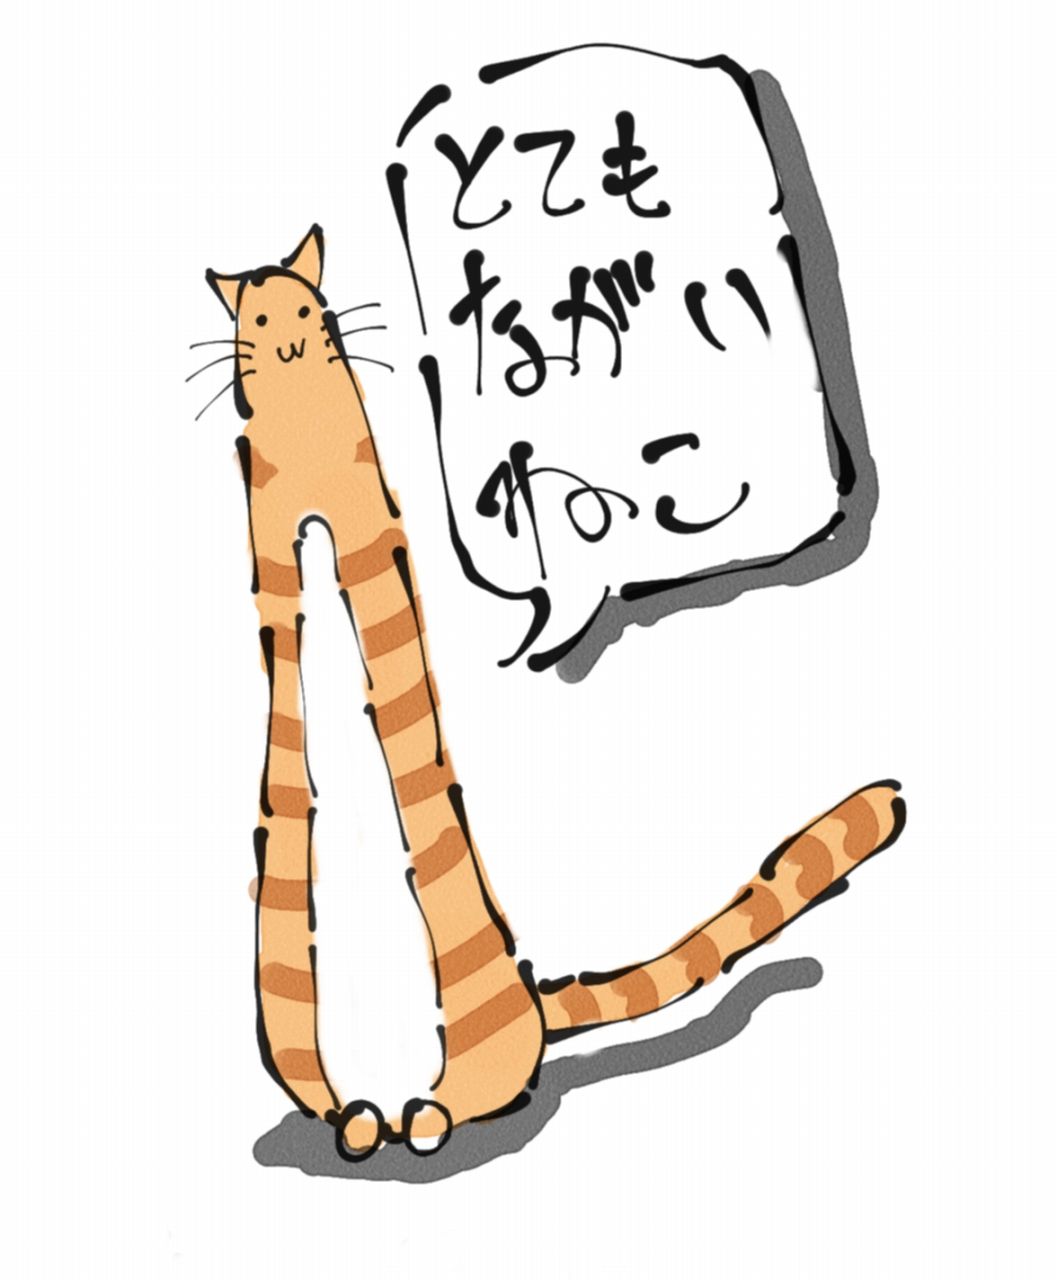 とても
ながい
ねこ